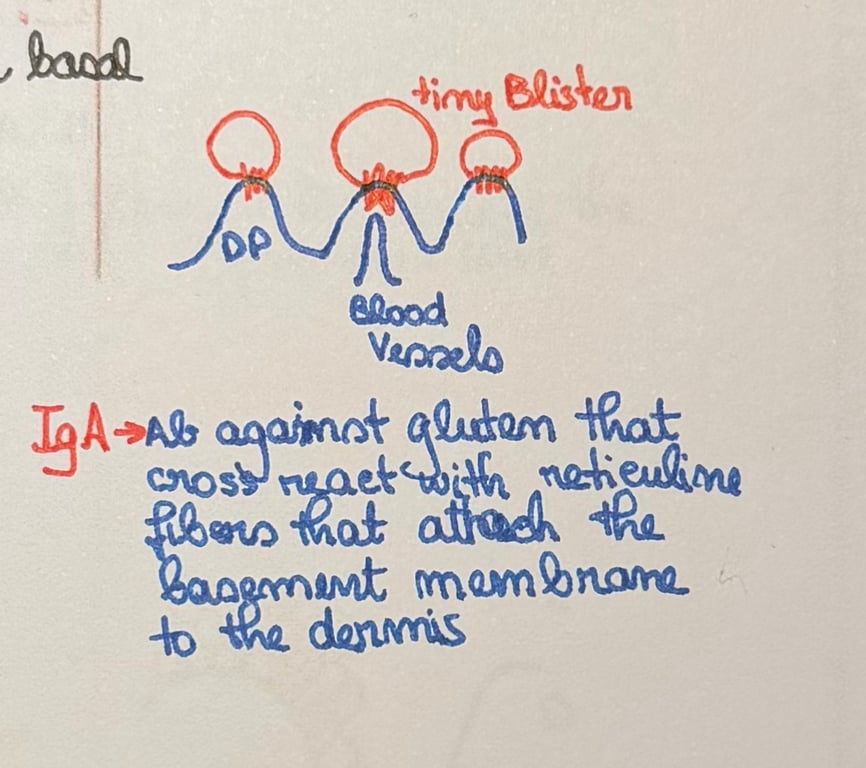 basal
tiny Blister
DP
Blood
Vessels
IgA→Ab against gluten that
cross react with reticuline
fibers that attach the
basement membrane
to the dermis